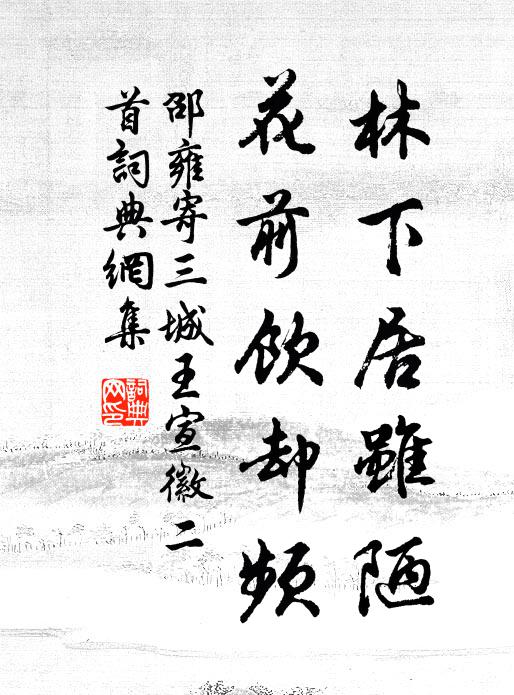 林下居雖陋
花前飲却頻
邵雍寄三城王宣徽二
首詞典網集
詞典
网印